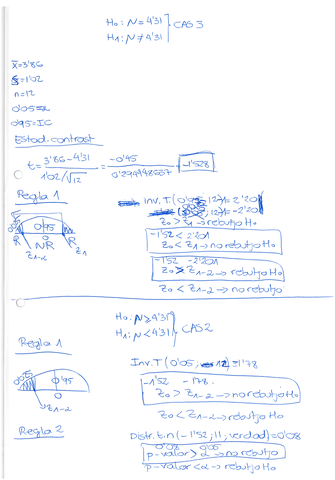 H₀: N = 4'31
H₁: N ≠ 4'31 } CAS 3
x̄ = 3'86
S = 1'02
n = 12
0'05 = α
0'95 = IC
Estad. contrast
t = 3'86 - 4'31 / 1'02/√12 = -0'45 / 0'294448637 = -1'528
Regla 1
Inv.T (0'95, 12) = 2'20
(0'05, 12) = -2'20
0'95
R NR R
Z1-α Z1
Z0 > Z1 → rebutjo H₀
-1'52 < 2'201
Z0 < Z1 → no rebutjo H₀
-1'52 -2'201
Z0 > Z1-2 → rebutjo H₀
Z0 < Z1-2 → no rebutjo
H₀: N ≥ 4'31
H₁: N < 4'31 } CAS 2
Regla 1
Inv.T (0'05, 12) = 1'78
0'05 0'95
Z1-2
-1'52 -1'78
Z0 > Z1-2 → no rebutjo H₀
Z0 < Z1-2 → rebutjo H₀
Regla 2
Distr.t.n (-1'52; 11; verdad) = 0'08
0'08 0'05
p-valor > α → no rebutjo
p-valor < α → rebutjo H₀